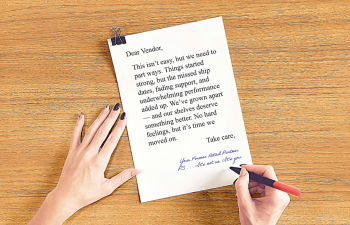 Dear Vendor,
This isn't easy, but we need to
part ways. Things started
strong, but the missed ship
dates, fading support, and
underwhelming performance
added up. We've grown apart
— and our shelves deserve
something better. No hard
feelings, but it's time we
moved on.
Take care,
Your Former Retail Partner
P.S. ... it's not us. It's you.